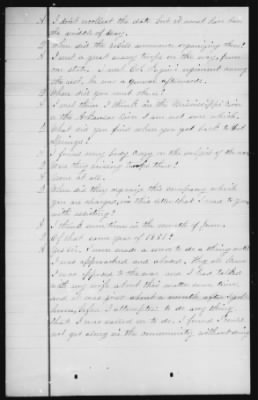 A I don't recollect the date but it must have been
the middle of May.
Q When did the rebels commence organizing there?
A I met a great many troops on the way, from
our state. I met Col. regiment among
the rest, he was a General afterwards.
Q Where did you meet them?
A I met them I think on the Mississippi River
or the Arkansas River I am not sure which.
Q What did you find when you got back to Hot
Springs?
A I found every body crazy on the subject of the war.
Q Was they raising troops there?
A Soon at all.
Q When did they organize this company which
you are charged, in this letter that I read to you
with assisting?
A I think sometime in the month of June.
Q Of that same year of 1861?
A Yes sir. I never made a move to do a thing until
I was approached and abused. They all knew
I was opposed to the war and I had talked
with my wife about this matter some time,
and it was just about a month after I got
home, before I attempted to do any thing
that I was called on to do. I found I could
not get along in the community without doing